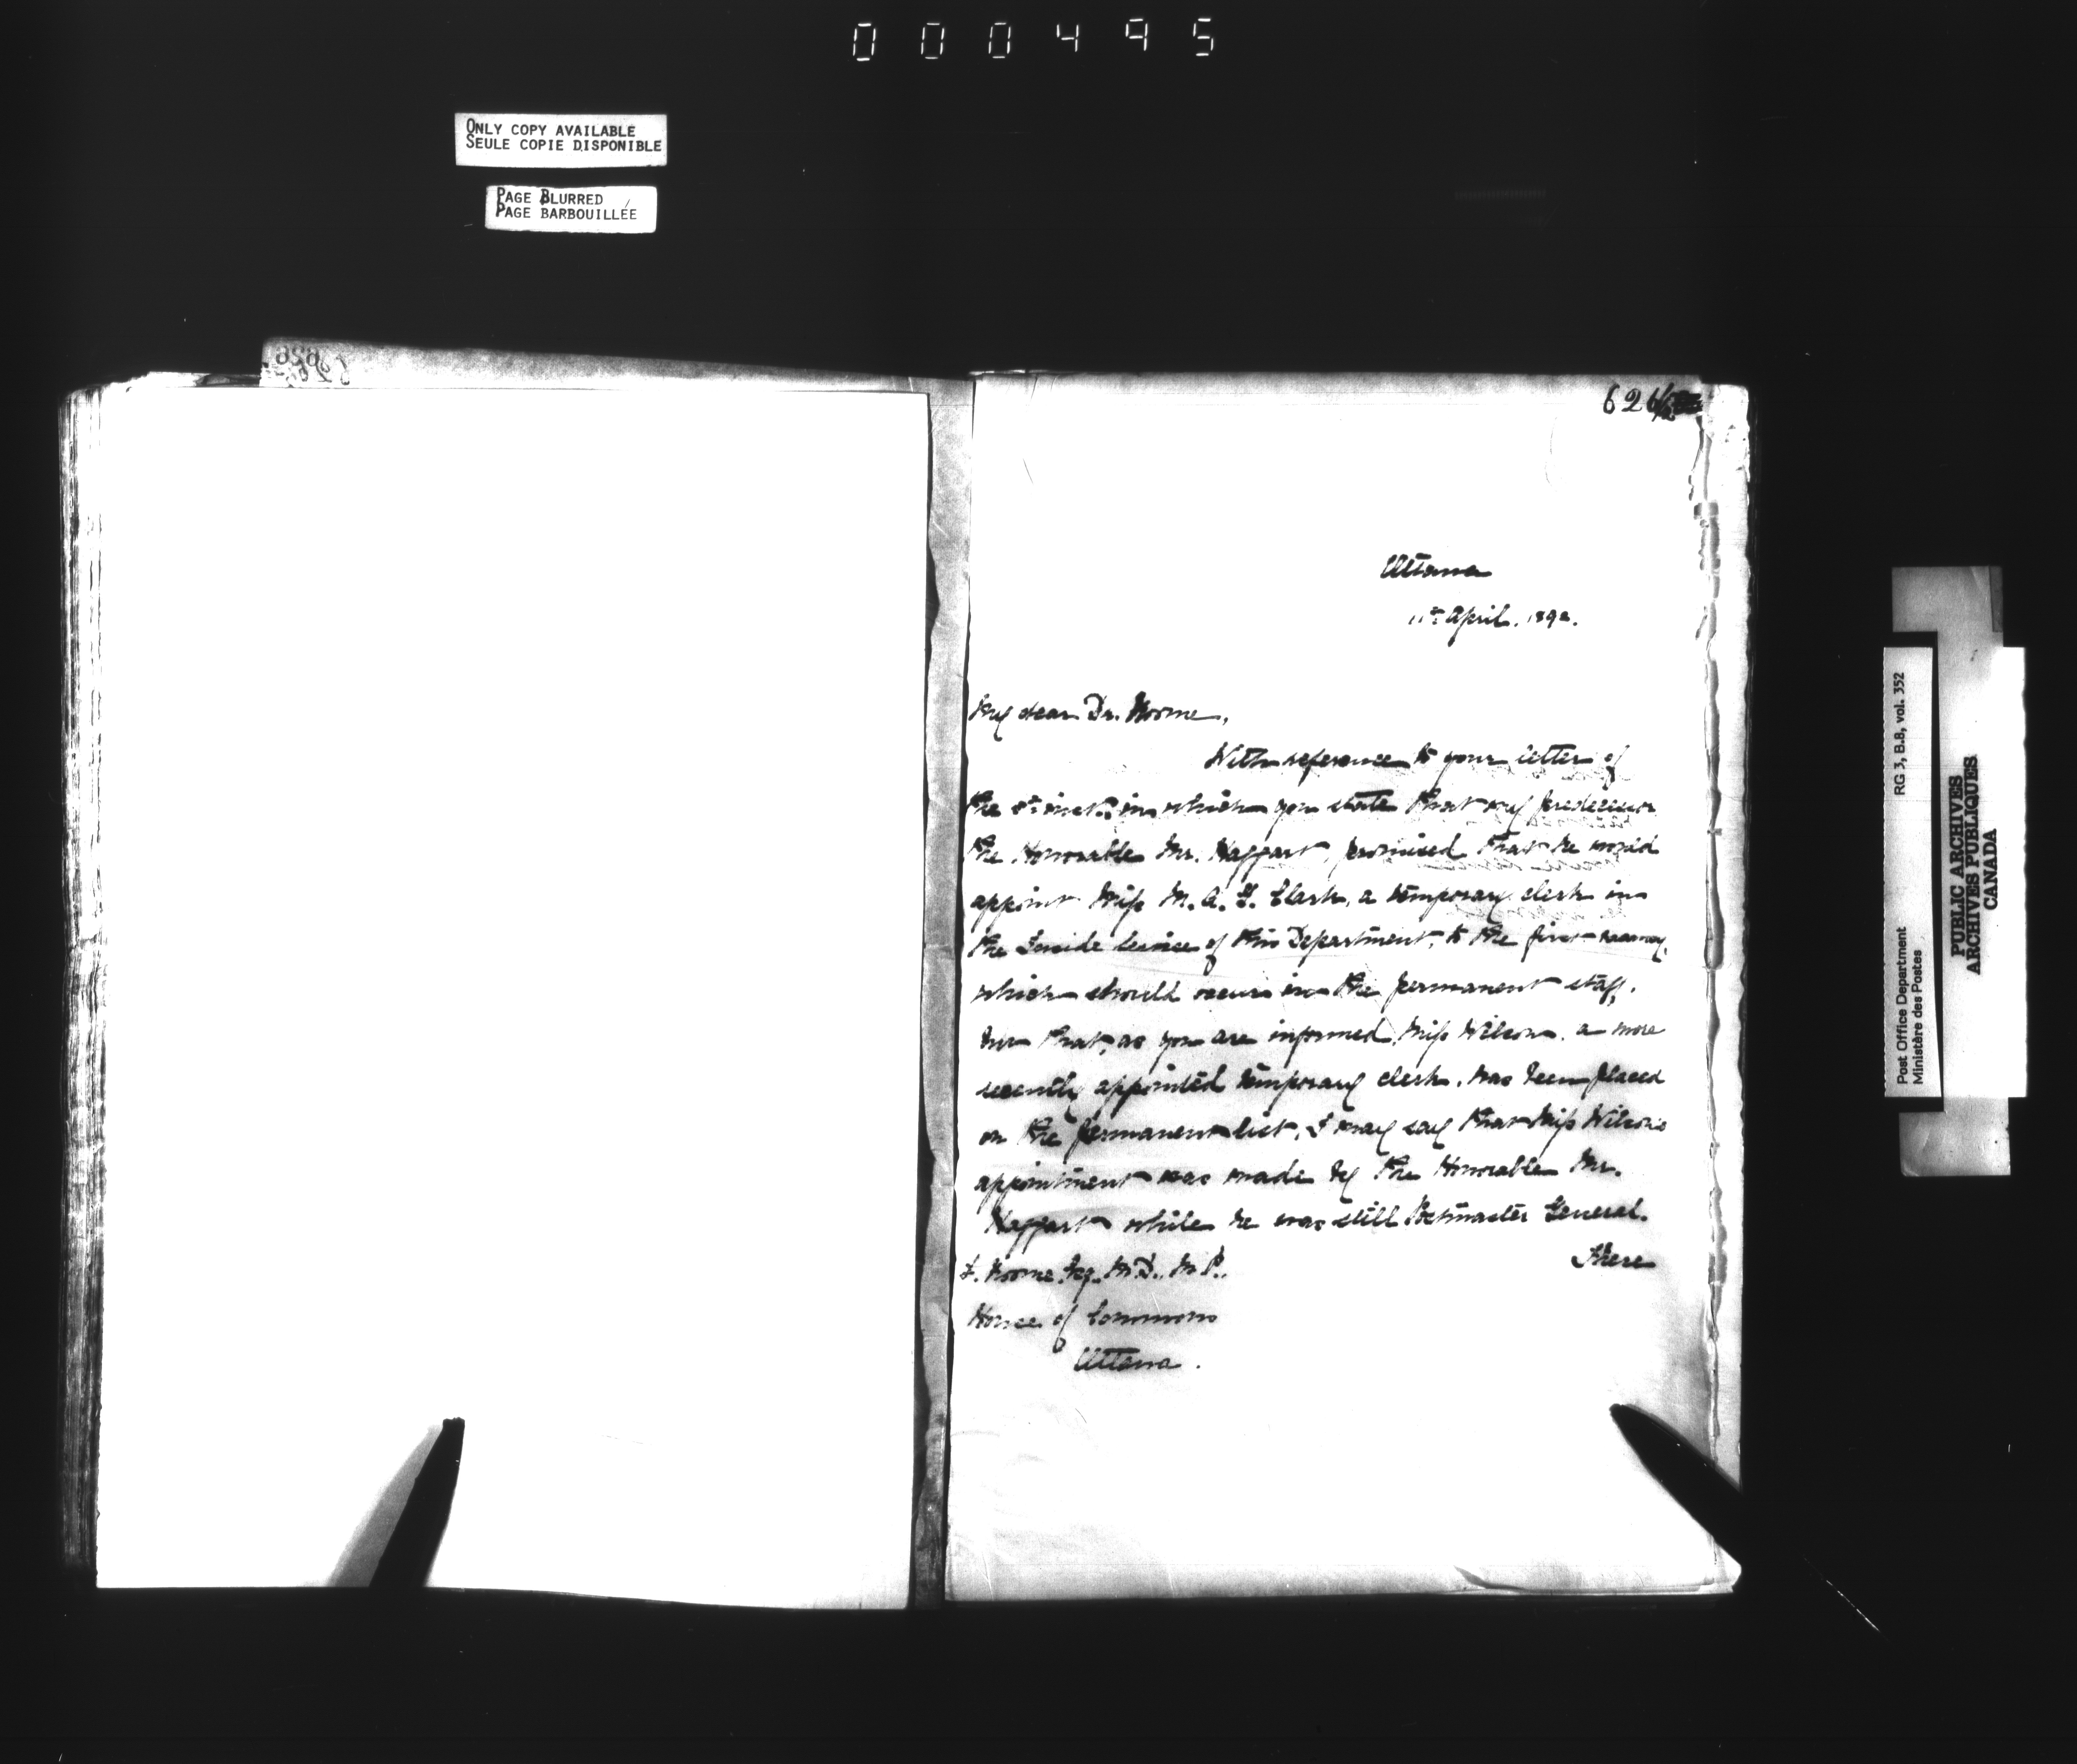 000495
ONLY COPY AVAILABLE
SEULE COPIE DISPONIBLE
PAGE BLURRED
PAGE BARBOUILLÉE
626½
Ottawa
11th April. 1892.
My dear Dr. Roome,
With reference to your letter of
the 8th inst., in which you state that my predecessor
the Honorable Mr. Haggart, promised that he would
appoint Miss M. A. G. Clark, a temporary clerk in
the Inside Service of this Department, to the first vacancy,
which should occur in the permanent staff,
but that, as you are informed, Miss Wilson, a more
recently appointed temporary clerk, has been placed
on the permanent list, I may say that Miss Wilson's
appointment was made by the Honorable Mr.
Haggart while he was still Postmaster General.
There
Roome, Esq., M.D., M.P.,
House of Commons
Ottawa.
Post Office Department
Ministère des Postes
RG 3, B.8, vol. 352
PUBLIC ARCHIVES
ARCHIVES PUBLIQUES
CANADA